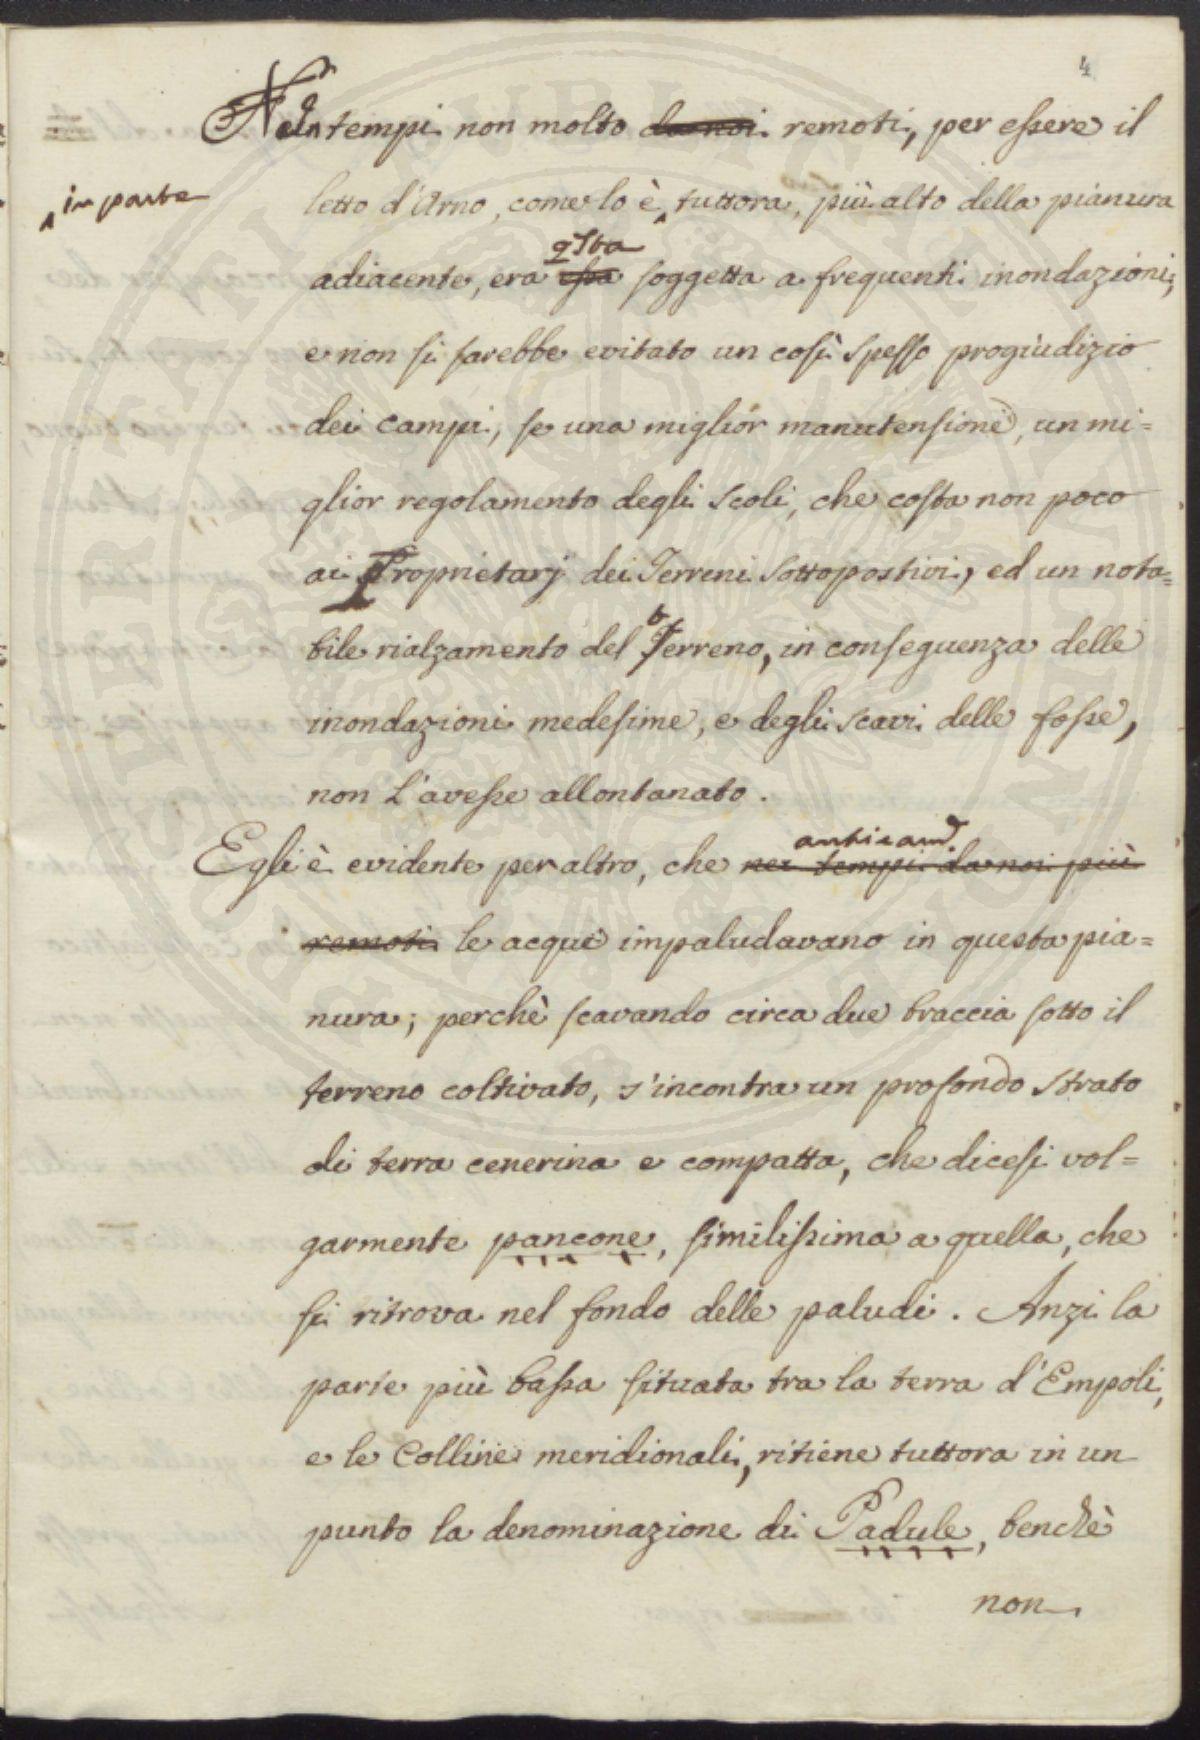 4
In tempi non molto da noi remoti, per essere il
in parte
letto d'Arno, come lo è tuttora, più alto della pianura
qsta
adiacente, era essa soggetta a frequenti inondazioni,
e non si sarebbe evitato un così spesso progiudizio
dei campi, se una miglior manutensione, un mi=
glior regolamento degli scoli, che costa non poco
ai Proprietarj dei Terreni sottopostivi, ed un nota=
bile rialzamento del terreno, in conseguenza delle
inondazioni medesime, e degli scavi delle fosse,
non l'avesse allontanato.
anticamᵉ
Egli è evidente per altro, che nei tempi da noi più
remoti le acque impaludavano in questa pia=
nura; perchè scavando circa due braccia sotto il
terreno coltivato, s'incontra un profondo strato
di terra cenerina e compatta, che dicesi vol=
garmente pancone, similissima a quella, che
si ritrova nel fondo delle paludi. Anzi la
parte più bassa situata tra la terra d'Empoli,
e le Colline meridionali, ritiene tuttora in un
punto la denominazione di Padule, benchè
non